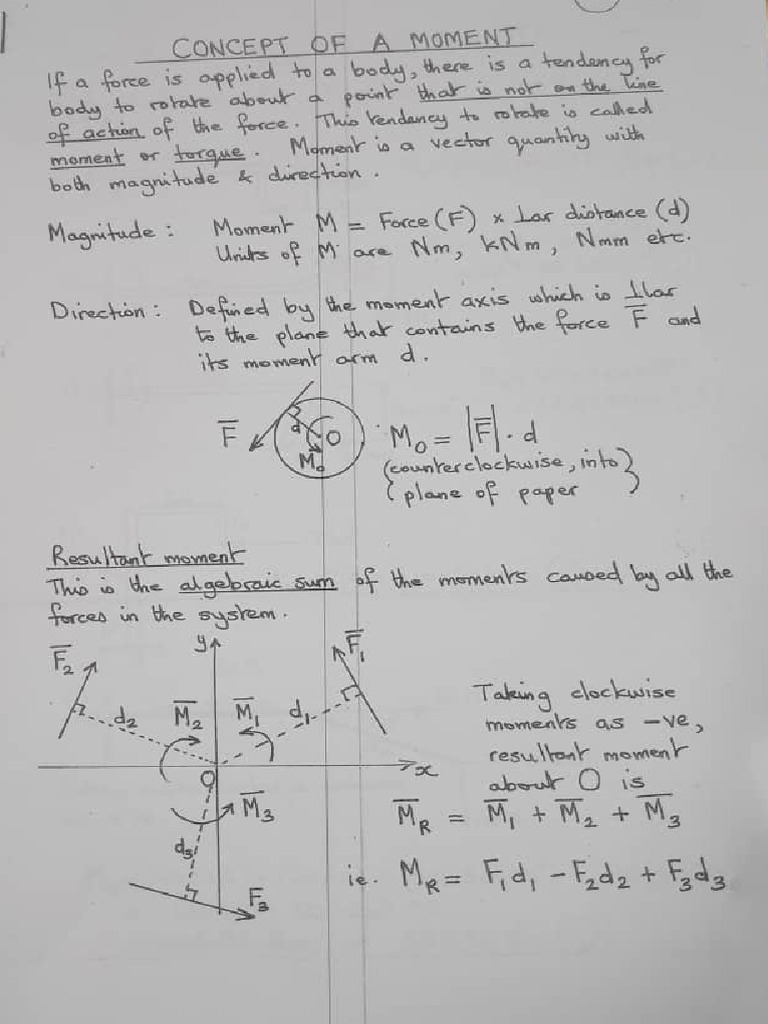 CONCEPT OF A MOMENT
If a force is applied to a body, there is a tendency for
body to rotate about a point that is not on the line
of action of the force. This tendency to rotate is called
moment or torque. Moment is a vector quantity with
both magnitude & direction.
Magnitude: Moment M = Force (F) × ⊥ar distance (d)
Units of M are Nm, kNm, Nmm etc.
Direction: Defined by the moment axis which is ⊥lar
to the plane that contains the force F̅ and
its moment arm d.
F̅ d O M₀
M₀ = |F̅| · d
(counterclockwise, into
plane of paper)
Resultant moment
This is the algebraic sum of the moments caused by all the
forces in the system.
F̅₂ y F̅₁
d₂ M̅₂ M̅₁ d₁
O x
M̅₃
d₃
F̅₃
Taking clockwise
moments as -ve,
resultant moment
about O is
M̅_R = M̅₁ + M̅₂ + M̅₃
ie. M_R = F₁d₁ - F₂d₂ + F₃d₃